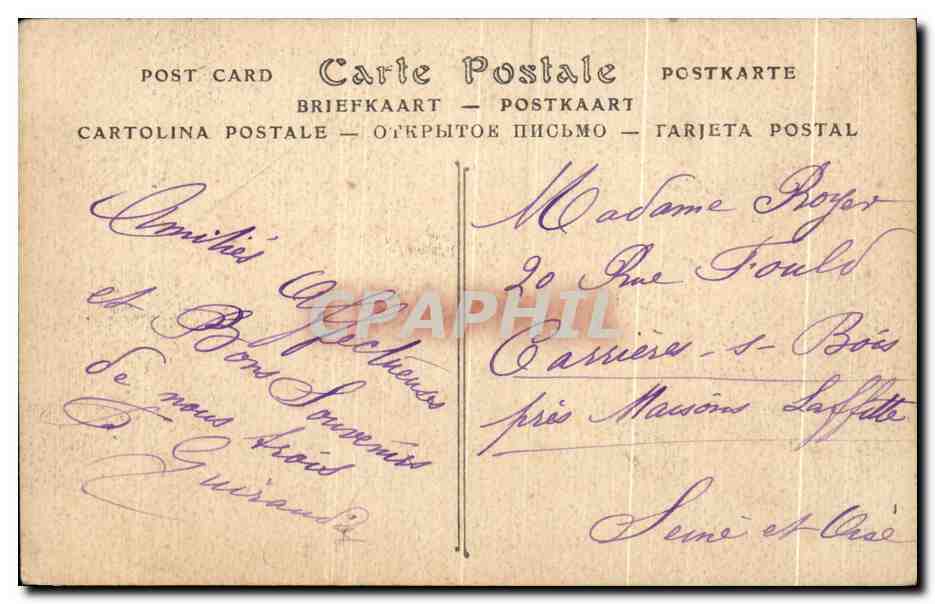 POST CARD Carte Postale POSTKARTE
BRIEFKAART — POSTKAART
CARTOLINA POSTALE — ОТКРЫТОЕ ПИСЬМО — TARJETA POSTAL
Amitiés Affectueuses
et Bons Souvenirs
de nous trois
Guiraud
Madame Royer
20 Rue Fould
Carrières -s- Bois
près Maisons Laffitte
Seine et Oise
CPAPHIL